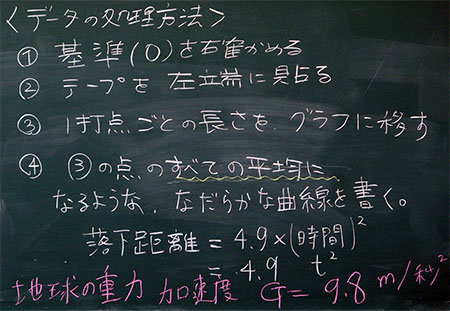 <データの処理方法>
① 基準(0)を確かめる
② テープを 左端に貼る
③ 1打点ごとの長さを グラフに移す
④ ③の点のすべての平均に
なるような、なだらかな曲線を書く。
落下距離 = 4.9×(時間)²
= 4.9 t²
地球の重力 加速度 G = 9.8 m/秒²